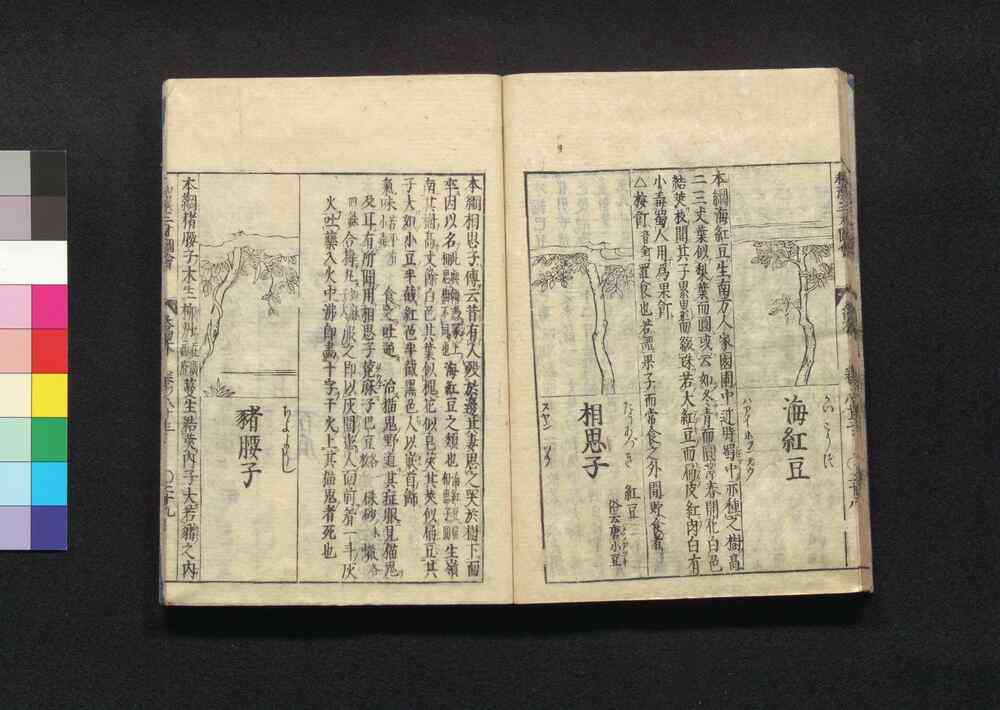 海紅豆
かいこうず
ハアイ ホン テウ
本綱海紅豆生南方人家園圃中近時蜀中亦種之樹高
二三丈葉似梨葉而圓或云如冬青而圓澤春開花白色
結莢枝間其子累累而綴珠若大紅豆而扁皮紅肉白有
小毒蜀人用爲果飣
△按飣音矴置食也若置果子而常食之外間貯食者
相思子
スヤン ツウ
紅豆
俗云唐小豆
本綱相思子傳云昔有人歿於邊其妻思之哭於樹下而
卒因以名之 海紅豆之類也 生嶺
南其樹高丈餘白色其葉似槐花似皂莢其莢似扁豆其
子大如小豆半截紅色半截黑色人以嵌首飾
氣味 苦平有小毒 食之吐逆 治猫鬼野道其症眼見猫鬼
及耳有所聞用相思子蓖麻子巴豆 硃砂
四銖合擣丸如麻子大服之即以灰圍患人面前着一斗灰
火吐藥入火中沸即畫十字于火上其猫鬼者死也
豬腰子
ちよようし
本綱猪腰子木生柳州蔓生結莢內子大若豬之內